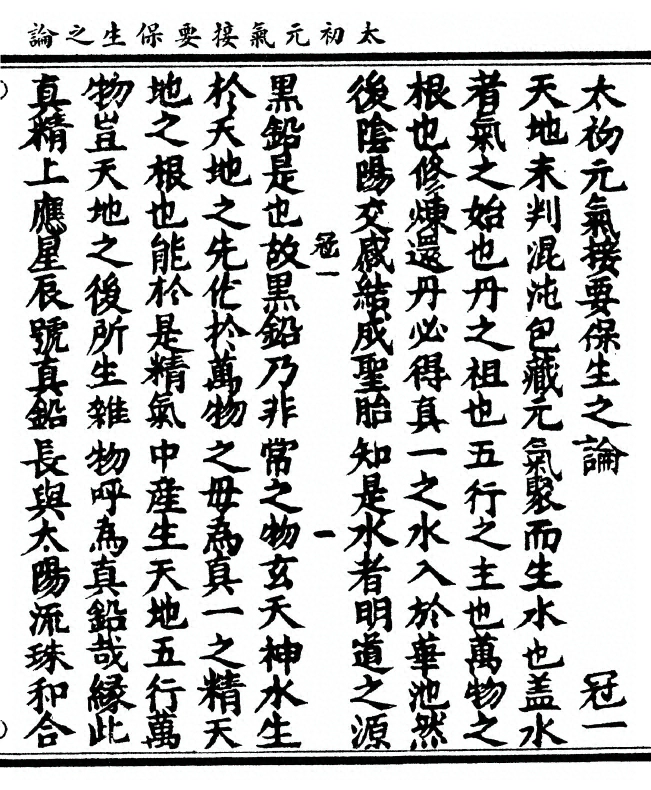 太初元氣接要保生之論
太初元氣接要保生之論 冠一
天地未判混沌包藏元氣聚而生水也盖水
者氣之始也丹之祖也五行之主也萬物之
根也修煉還丹必得真一之水入於華池然
後陰陽交感結成聖胎知是水者明道之源
冠一 一
黑鉛是也故黑鉛乃非常之物玄天神水生
於天地之先化於萬物之母為真一之精天
地之根也能於是精氣中産生天地五行萬
物豈天地之後所生雜物呼為真鉛哉縁此
真精上應星辰號真鉛長與太陽流珠和合